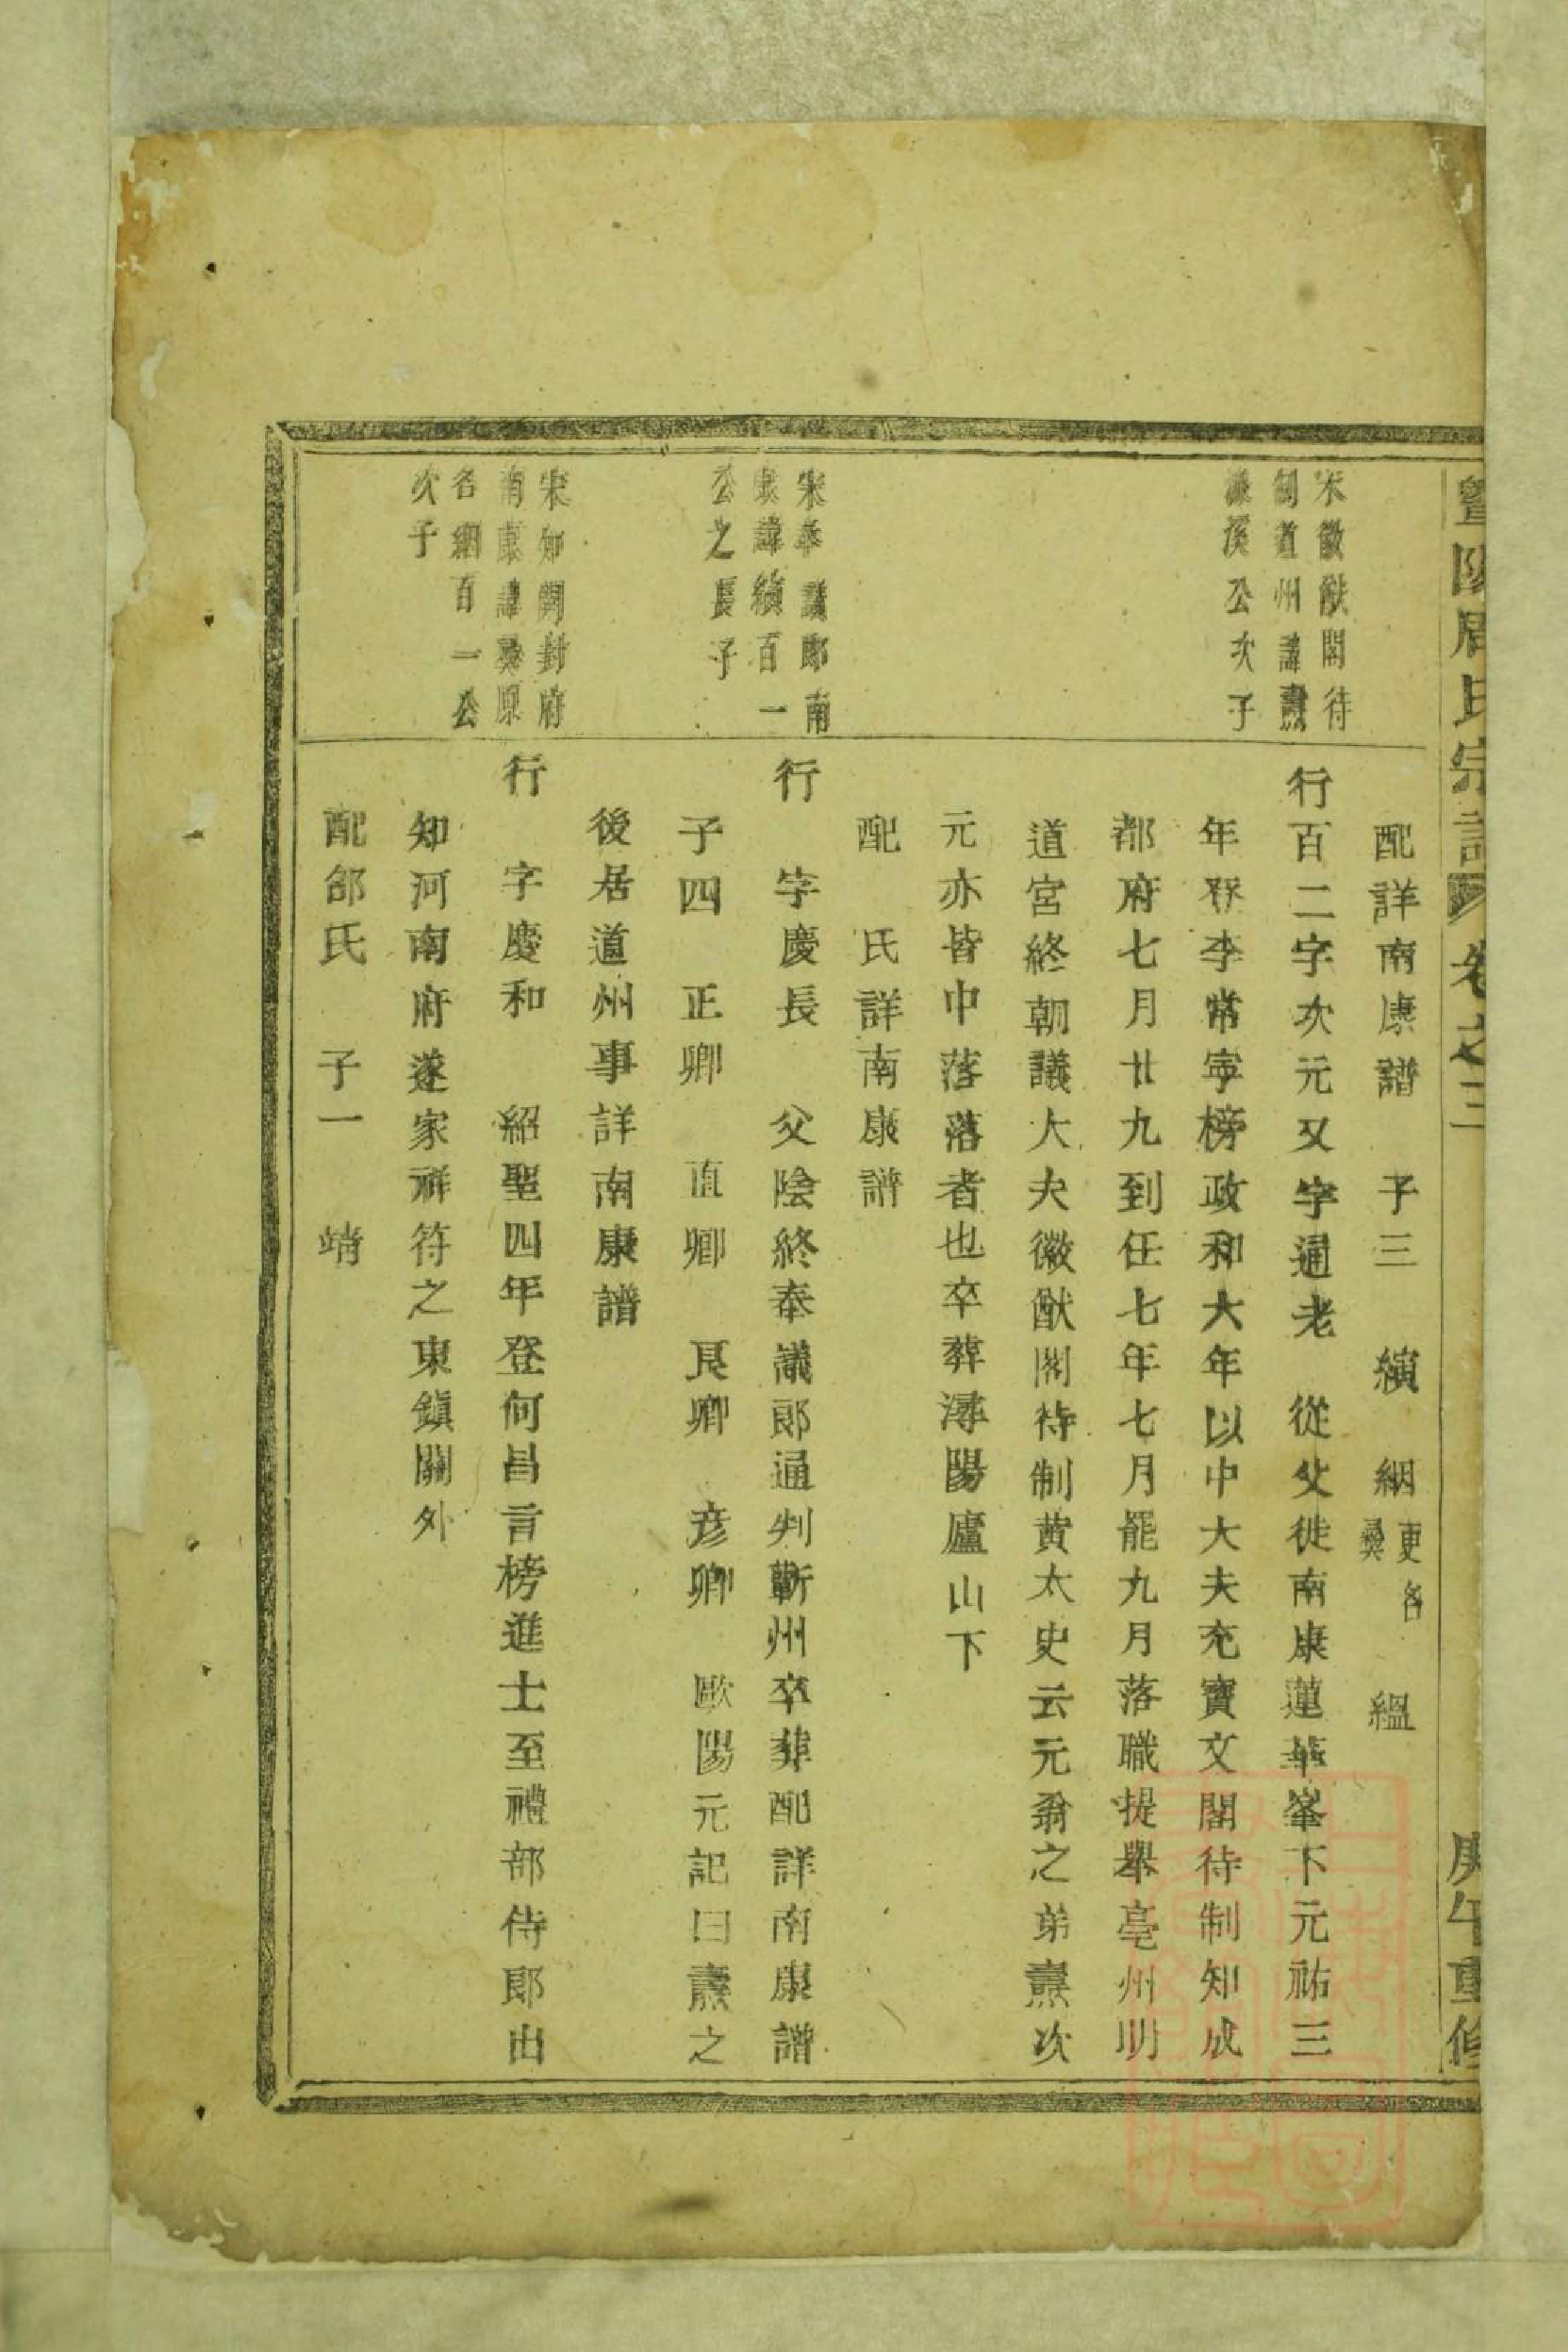 暨陽周氏宗譜 卷之三 庚午重修
配詳南康譜 子三 縯 絪更名㢲 縕
宋徽猷閣待
制道州諱燾
濂溪公次子
行百二字次元又字通老 從父徙南康蓮華峯下元祐三
年登李常寧榜政和六年以中大夫充寶文閣待制知成
都府七月廿九到任七年七月罷九月落職提舉亳州明
道宮終朝議大夫徽猷閣待制黄太史云元翁之弟燾次
元亦皆中落落者也卒葬潯陽廬山下
配 氏詳南康譜
宋奉議郎南
康諱縯百一
公之長子
行 字慶長 父陰終奉議郎通判蘄州卒葬配詳南康譜
子四 正卿 直卿 良卿 彦卿 歐陽元記曰燾之
後居道州事詳南康譜
宋知開封府
南康諱㢲原
名絪百一公
次子
行 字慶和 紹聖四年登何昌言榜進士至禮部侍郎出
知河南府遂家祥符之東鎮關外
配郤氏 子一 靖